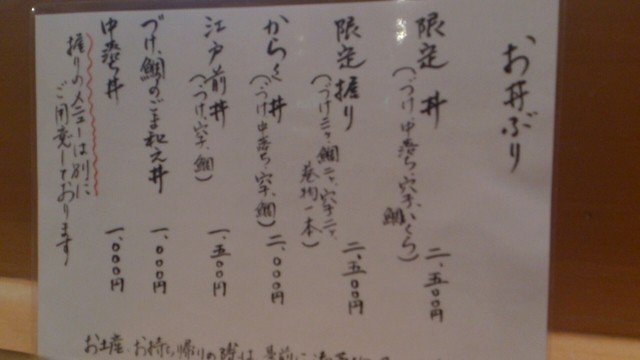 お丼ぶり
限定 丼 二、五〇〇円
(づけ、中落ち、穴子、いくら、鯛)
限定 握り 二、五〇〇円
(づけ二ヶ、鯛二ヶ、穴子二ヶ、巻物一本)
からく丼 二、〇〇〇円
(づけ、中落ち、穴子、鯛)
江戸前丼 一、五〇〇円
(づけ、穴子、鯛)
づけ、鯛のごま和え丼 一、〇〇〇円
中落ち丼 一、〇〇〇円
握りのメニューは別に
ご用意しております
お土産、お持ち帰りの際は